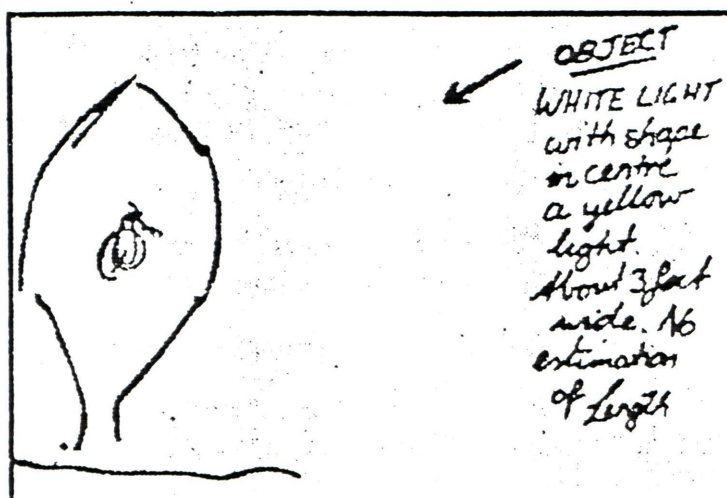 OBJECT
WHITE LIGHT
with shape
in centre
a yellow
light.
About 3 feet
wide. No
estimation
of Length